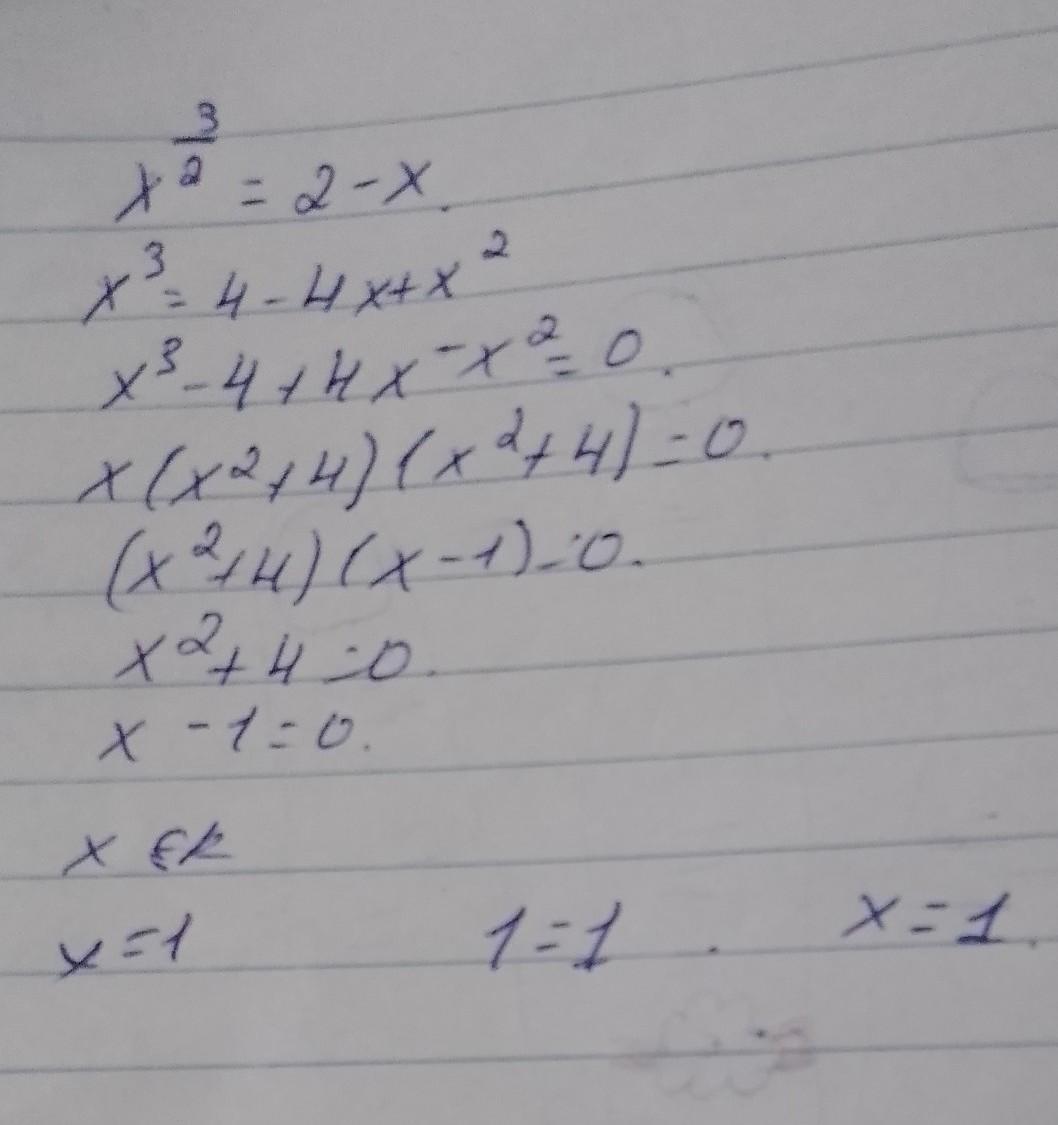 x^(3/2) = 2 - x.
x³ = 4 - 4x + x²
x³ - 4 + 4x - x² = 0.
x(x² + 4)(x² + 4) = 0.
(x² + 4)(x - 1) = 0.
x² + 4 = 0.
x - 1 = 0.
x ∈ R
x = 1 1 = 1 . x = 1.